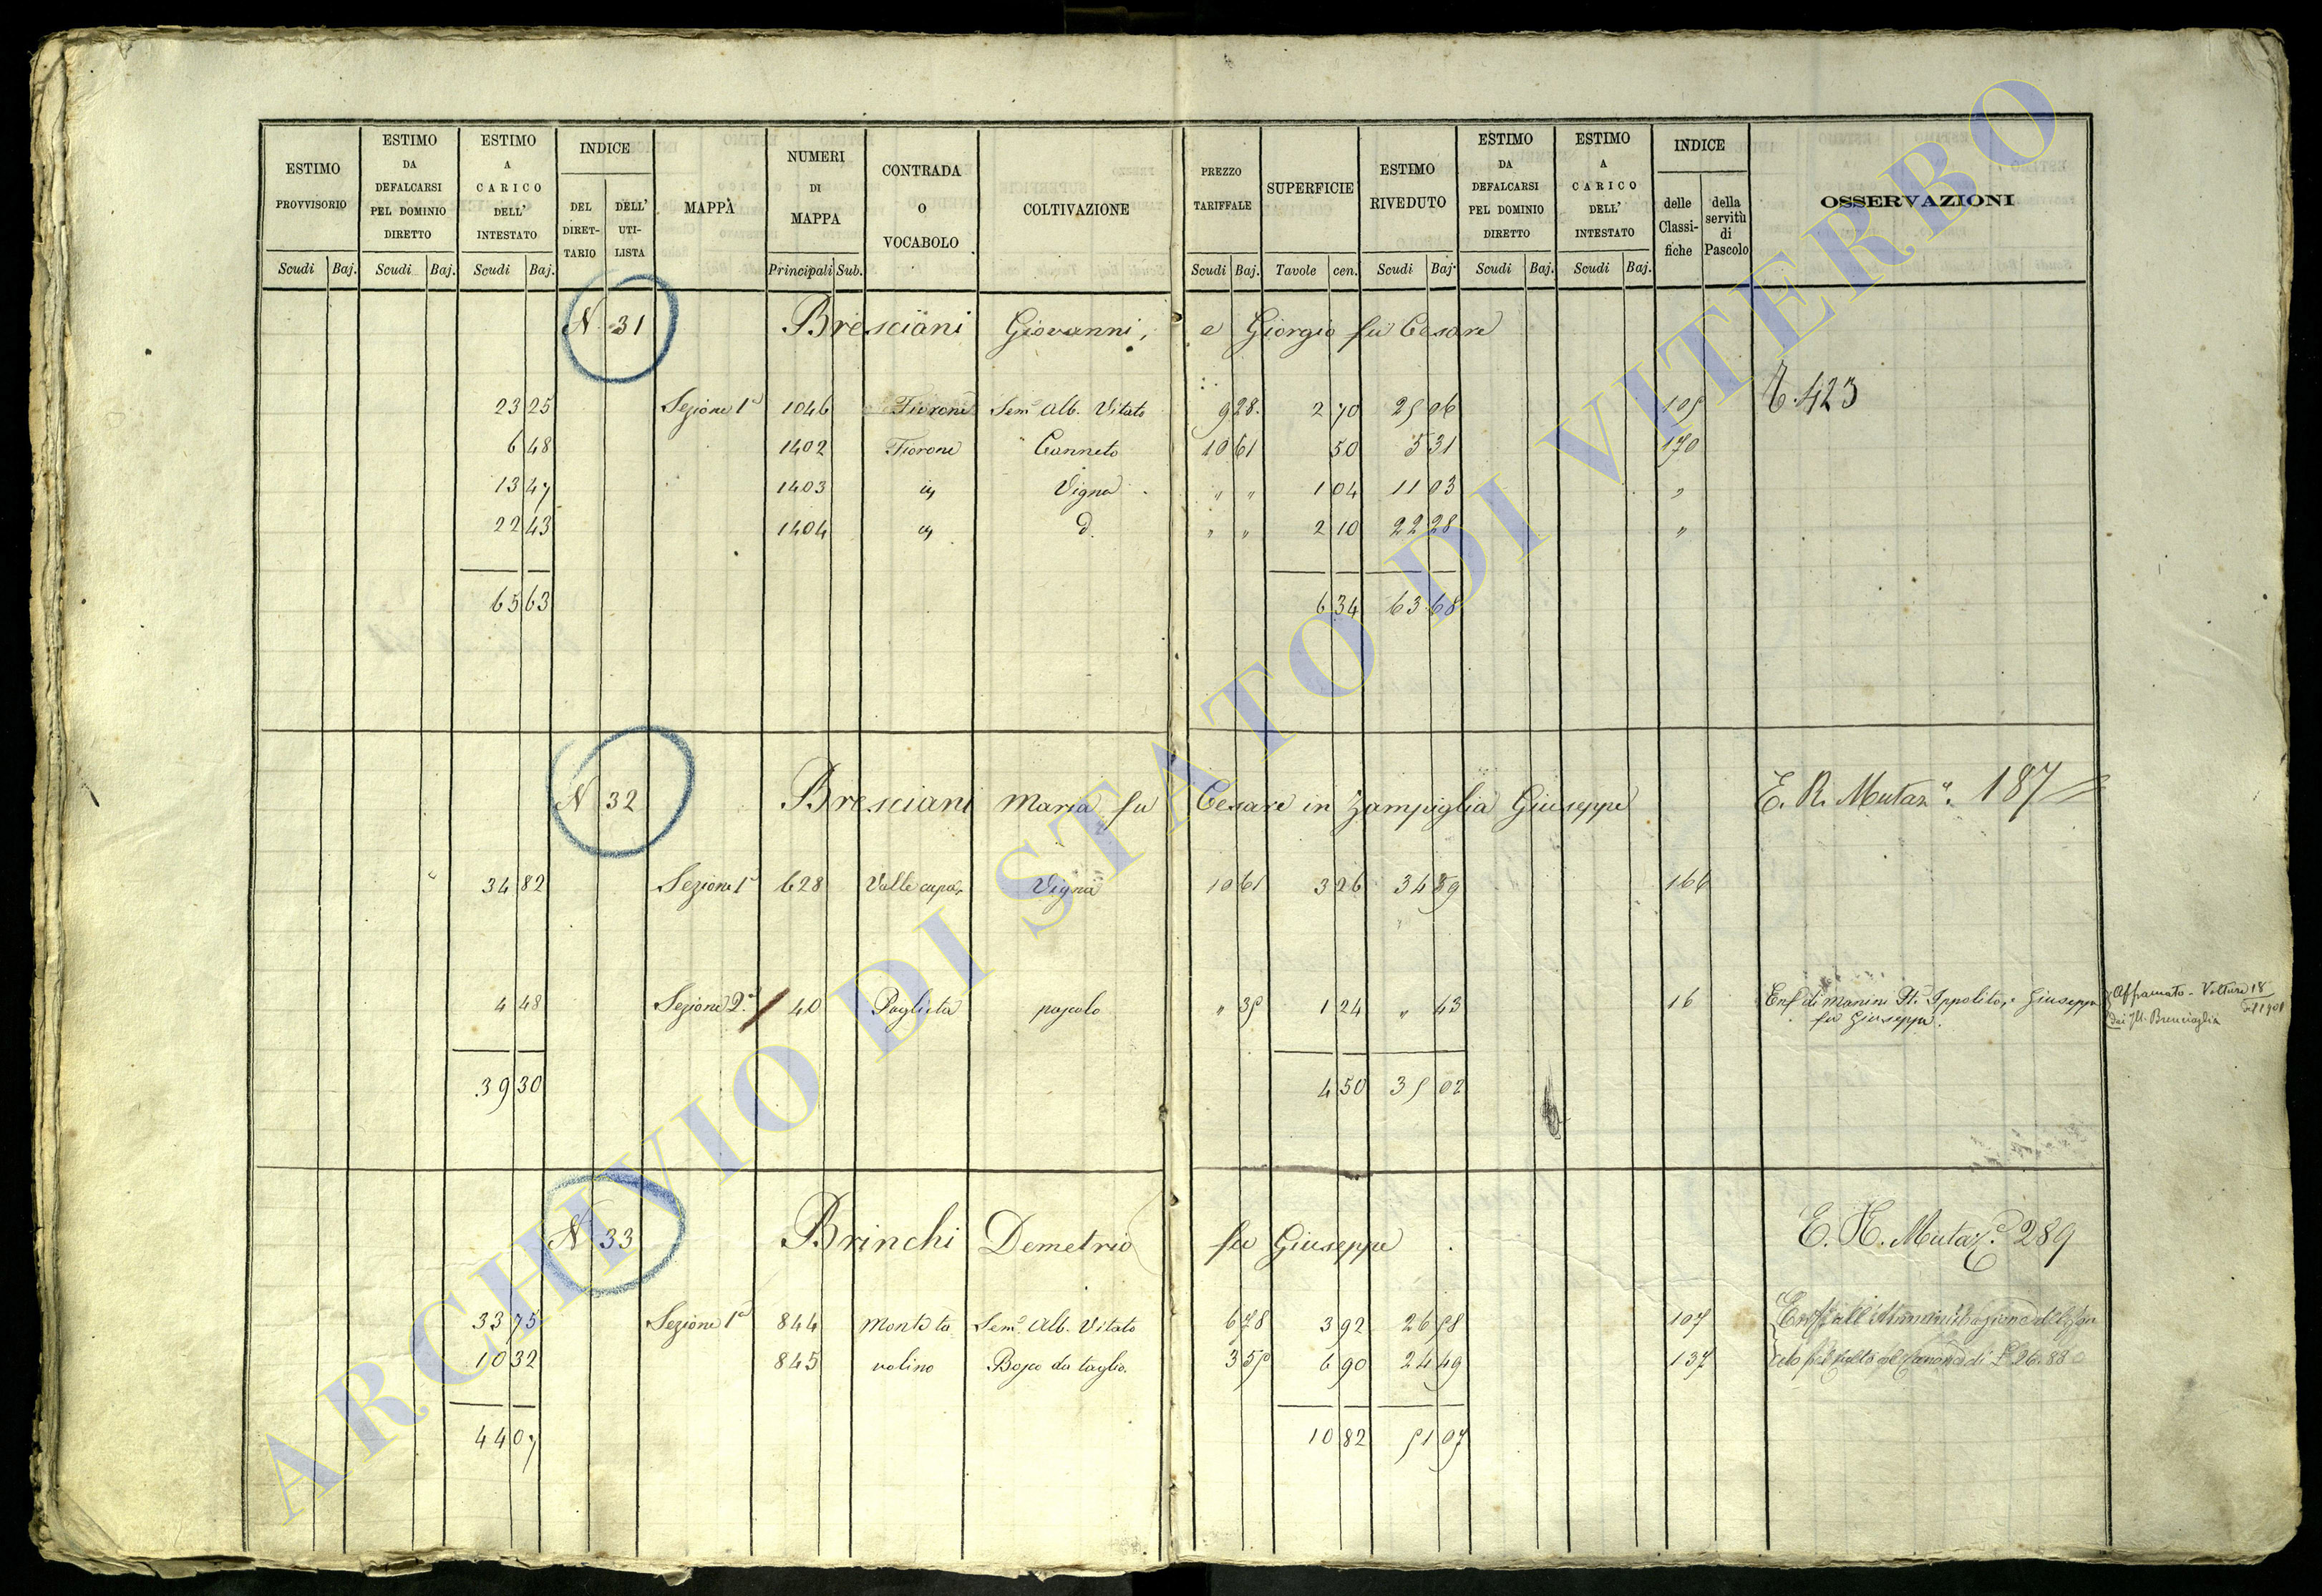 ESTIMO PROVVISORIO | ESTIMO DA DEFALCARSI PEL DOMINIO DIRETTO | ESTIMO A CARICO DELL' INTESTATO | INDICE DEL DIRETTARIO | DELL' UTILISTA | MAPPA | NUMERI DI MAPPA | CONTRADA O VOCABOLO | COLTIVAZIONE | PREZZO TARIFFALE | SUPERFICIE | ESTIMO RIVEDUTO | ESTIMO DA DEFALCARSI PEL DOMINIO DIRETTO | ESTIMO A CARICO DELL' INTESTATO | INDICE delle Classifiche | della servitù di Pascolo | OSSERVAZIONI
Scudi Baj. Scudi Baj. Scudi Baj. Principali Sub. Scudi Baj. Tavole cen. Scudi Baj. Scudi Baj. Scudi Baj.
N 31 Bresciani Giovanni, e Giorgio fu Cesare
23 25 Sezione 1a 1046 Fiorone Sem.o Alb. Vitato 9 28. 2 70 25 06 105 E. 423
6 48 1402 Fiorone Canneto 10 61 50 5 31 170
13 47 1403 Vigna " " 1 04 11 03 "
22 43 1404 d. " " 2 10 22 28 "
65 63 6 34 63 68
N 32 Bresciani Maria fu Cesare in Zampiglia Giuseppe E. R. Mutaz.e 187
" 34 82 Sezione 1a 628 Vigna 10 61 3 26 34 59 166
4 48 Sezione 2a 40 Paglieta pascolo " 35 1 24 " 43 16 Enf. di Manini Ippolito, e Giuseppe
fu Giuseppe.
Affrancato - Volture 18
1901
39 30 4 50 35 02
N 33 Brinchi Demetrio fu Giuseppe E. R. Mutaz.e 289
33 75 Sezione 1a 844 Montata Sem.o Alb. Vitato 6 78 3 92 26 58 107
10 32 845 volino Bosco da taglio. 3 55 6 90 24 49 137
44 07 10 82 51 07
ARCHIVIO DI STATO DI VITERBO